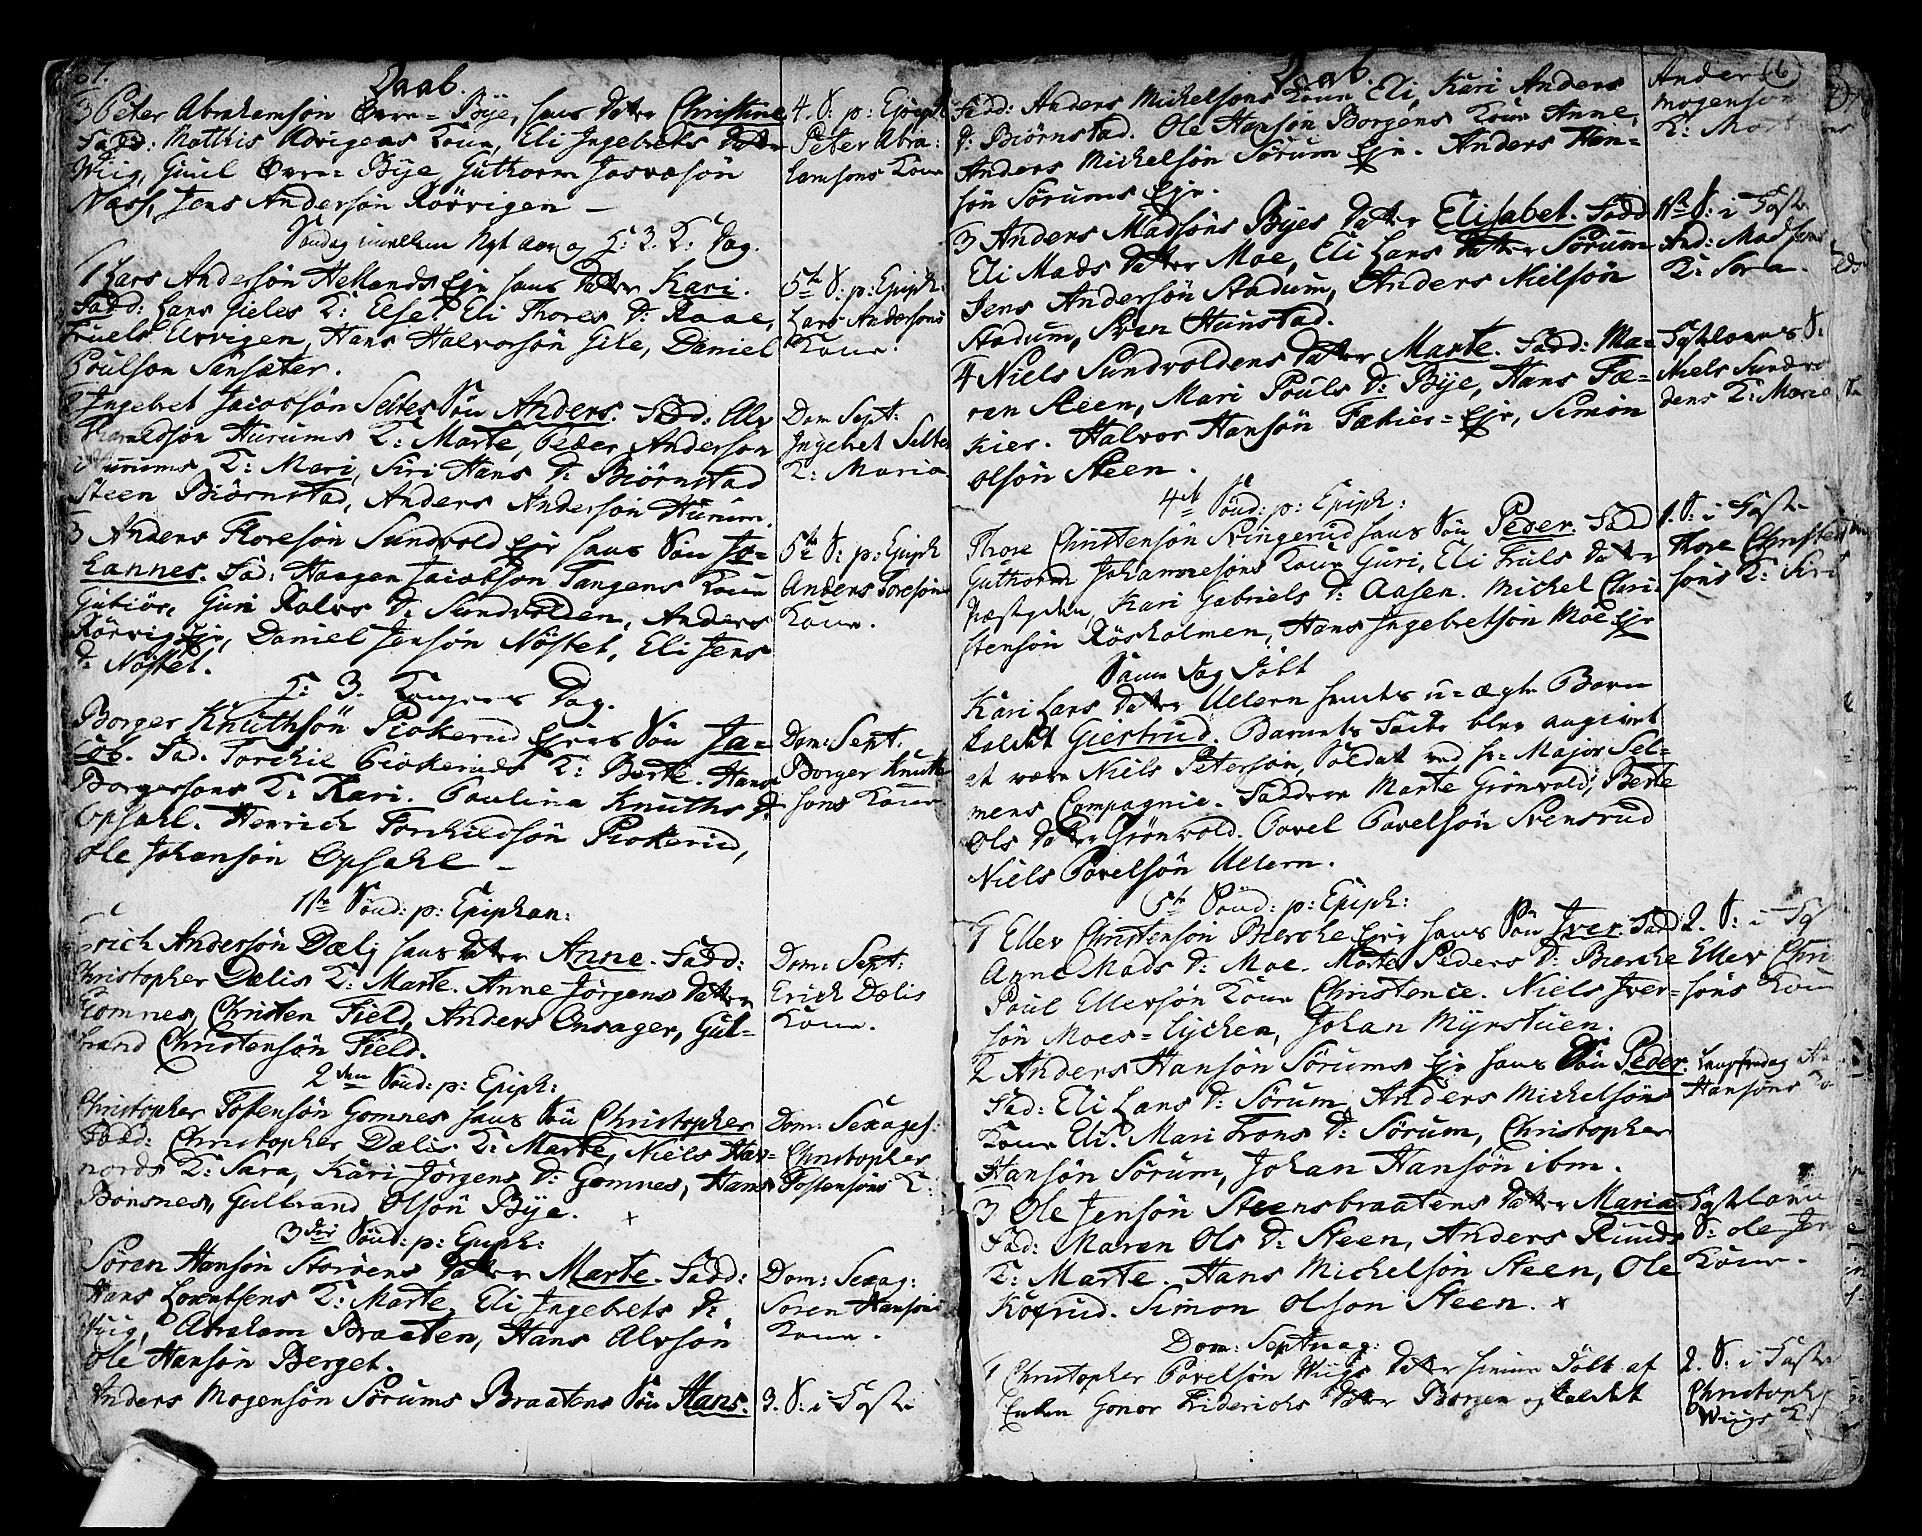 Daab.
3 Peter Abrahamsön Øvre=Bÿe, hans datter Christine
Fadd: Matthis Korigens Kone, Eli Ingebrets datter
Wiig, Guul Øvre=Bÿe, Guthorm
Næss, Jens Andersön Rörvigen —
Söndag imellem Nyt aar og H: 3. K: dag.
1 Lars Andersön Hellands Eje hans datter Kari.
Fadd: Hans Gieles K: Else. Eli Thores D: Raae,
Truels Urvigen, Hans Halvorsön Gile, Daniel
Poulson Sensæter.
Ingebret Jacobsön Seltes Sön Anders. Fadd: Alv
Haraldsön Hurums K: Marte, Peder Anderson
Hurums K: Mari, Siri Hans D: Biörnstad
Steen Biörnstad, Anders Anderson Hurum.
3 Anders Floresön Sundvold Eje hans Sön Jo=
hannes. Fad: Haagen Jacobsön Tangens Kone
Gubiör, Guri Rolvs D: Sundvolden, Anders
Rörvig Eje, Daniel Jensön Nöstet, Eli Jens
D: Nöstet.
H: 3. Kongers Dag.
Borger Knuthsön Piokerud Ejes Sön Ja=
cob. Fad. Torchil Piokeruds K: Berte. Hans
Borgersons K: Kari. Paulina Knuths D
Opsahl. Henrich Torchildsön Piokerud,
Ole Johansön Opsahl —
1ste Sönd: p: Epiphan:
Erich Andersön Dæli hans datter Anne. Fadd:
Christopher Dælis K: Marte. Anne Jörgens datter
Gomnes, Christen Field, Anders Onsager, Gul=
brand Christensön Field.
2den Sönd: p: Epiph:
Christopher Tostensön Gomnes hans Sön Christopher
Fadd: Christopher Dælis K: Marte, Niels Hav=
nords K: Sara, Kari Jörgens D: Gomnes, Hans
Bönsnes, Gulbrand Olsön Bÿe.
3die Sönd: p: Epiph:
Sören Hansön Storöens datter Marte. Fadd:
Hans Lorentsens K: Marte, Eli Ingebrets D:
Wiig, Abraham Braaten, Hans Alvsön
Ole Hansön Berget.
Anders Mogensön Sörums Braatens Sön Hans.
4. S. p: Epiph:
Peter Abra=
hamsons Kone
5te S: p: Epiph:
Lars Andersöns
Kone.
Dom Sept:
Ingebret Selte
K: Maria
5te S: p: Epiph
Anders Toresöns
Kone.
Dom: Sept.
Borger Knuth
sons Kone
Dom: Sept:
Erich Dælis
Kone.
Dom: Sexages:
Christopher
Tostensöns K:
Dom: Sexag:
Soren Hansöns
Kone.
3. S: i Faste
Daab.
Fadd: Anders Michelsons Kone Eli, Kari Anders
D: Biörnstad. Ole Hansön Borgens Kone Anne,
Anders Michelsön Sörum Eje. Anders Han=
sön Sörums Eje.
3 Anders Madsöns Bÿes datter Elisabet. Fadd
Eli Mads datter Moe, Eli Hans datter Sörum
Jens Andersön Stadum, Anders Nielsön
Stadum, Sven Hunstad.
4 Niels Sundvoldens datter Marte. Fadd: Ma=
ren Steen, Mari Pouls D: Bÿe, Hans Fæ=
kier. Halvor Hansön Fækier=Eje, Simon
Olsön Steen.
4de Sönd: p: Epiph:
Thore Christensön Svingerud hans Sön Peder. Fadd
Guthorm Johannesöns Kone Guri, Eli Truls datter
Præstgden, Kari Gabriels D: Aasen. Michel Chri=
stensön Rösholmen, Hans Ingebretsön Moe Eje
Samme Dag Döbt
Kari Lars datter Ullern hendes u=ægte Barn
kaldet Giertrud. Barnets Fader blev angivet
at være Niels Petersön, Soldat ved Hr Major Sel=
mens Compagnie. Faddere Marte Grönvold, Berte
Ols datter Grönvold. Povel Povelsön Svensrud
Niels Povelsön Ullern.
5te Sönd: p: Epiph:
1 Ellev Christensön Bierche Eje hans Sön Iver. Fadd
Anne Mads D: Moe. Marte Peders D: Bierche
Poul Ellevsön Kone Christence. Niels Iver=
sön Moes=Eychen, Johan Mÿrstuen.
2 Anders Hansön Sörums Eje hans Sön Peder.
Fad: Eli Hans D: Sörum, Anders Michelsöns
Kone Eli. Mari Frans D: Sörum, Christopher
Hansön Sörum, Johan Hansön ibm.
3 Ole Jensön Steensbraatens datter Maria
Fad: Maren Ols D: Steen, Anders Ruuds
K: Marte. Hans Michelsön Steen, Ole
Koxrud. Simon Olson Steen. x
Dom: Septuag:
1 Christopher Povelsön Wiigs datter hiemme Döbt af
Enken Gonor Friderichs datter Borgen og kaldet
6
Ander
Mogenso
K: Mort
1ste S: i Faste
And: Madsens
K: Sara.
Fastelavns S:
Niels Sundvo
dens K: Marie
1. S: i Faste
Thore Christen
söns K: Siri
2. S: i Fast
Ellev Chri
söns Kone
Langfredag
Hansöns Ko
Fastelavn
S: Ole Jen
Kone.
2. S: i Faste
Christoph
Wiigs K.